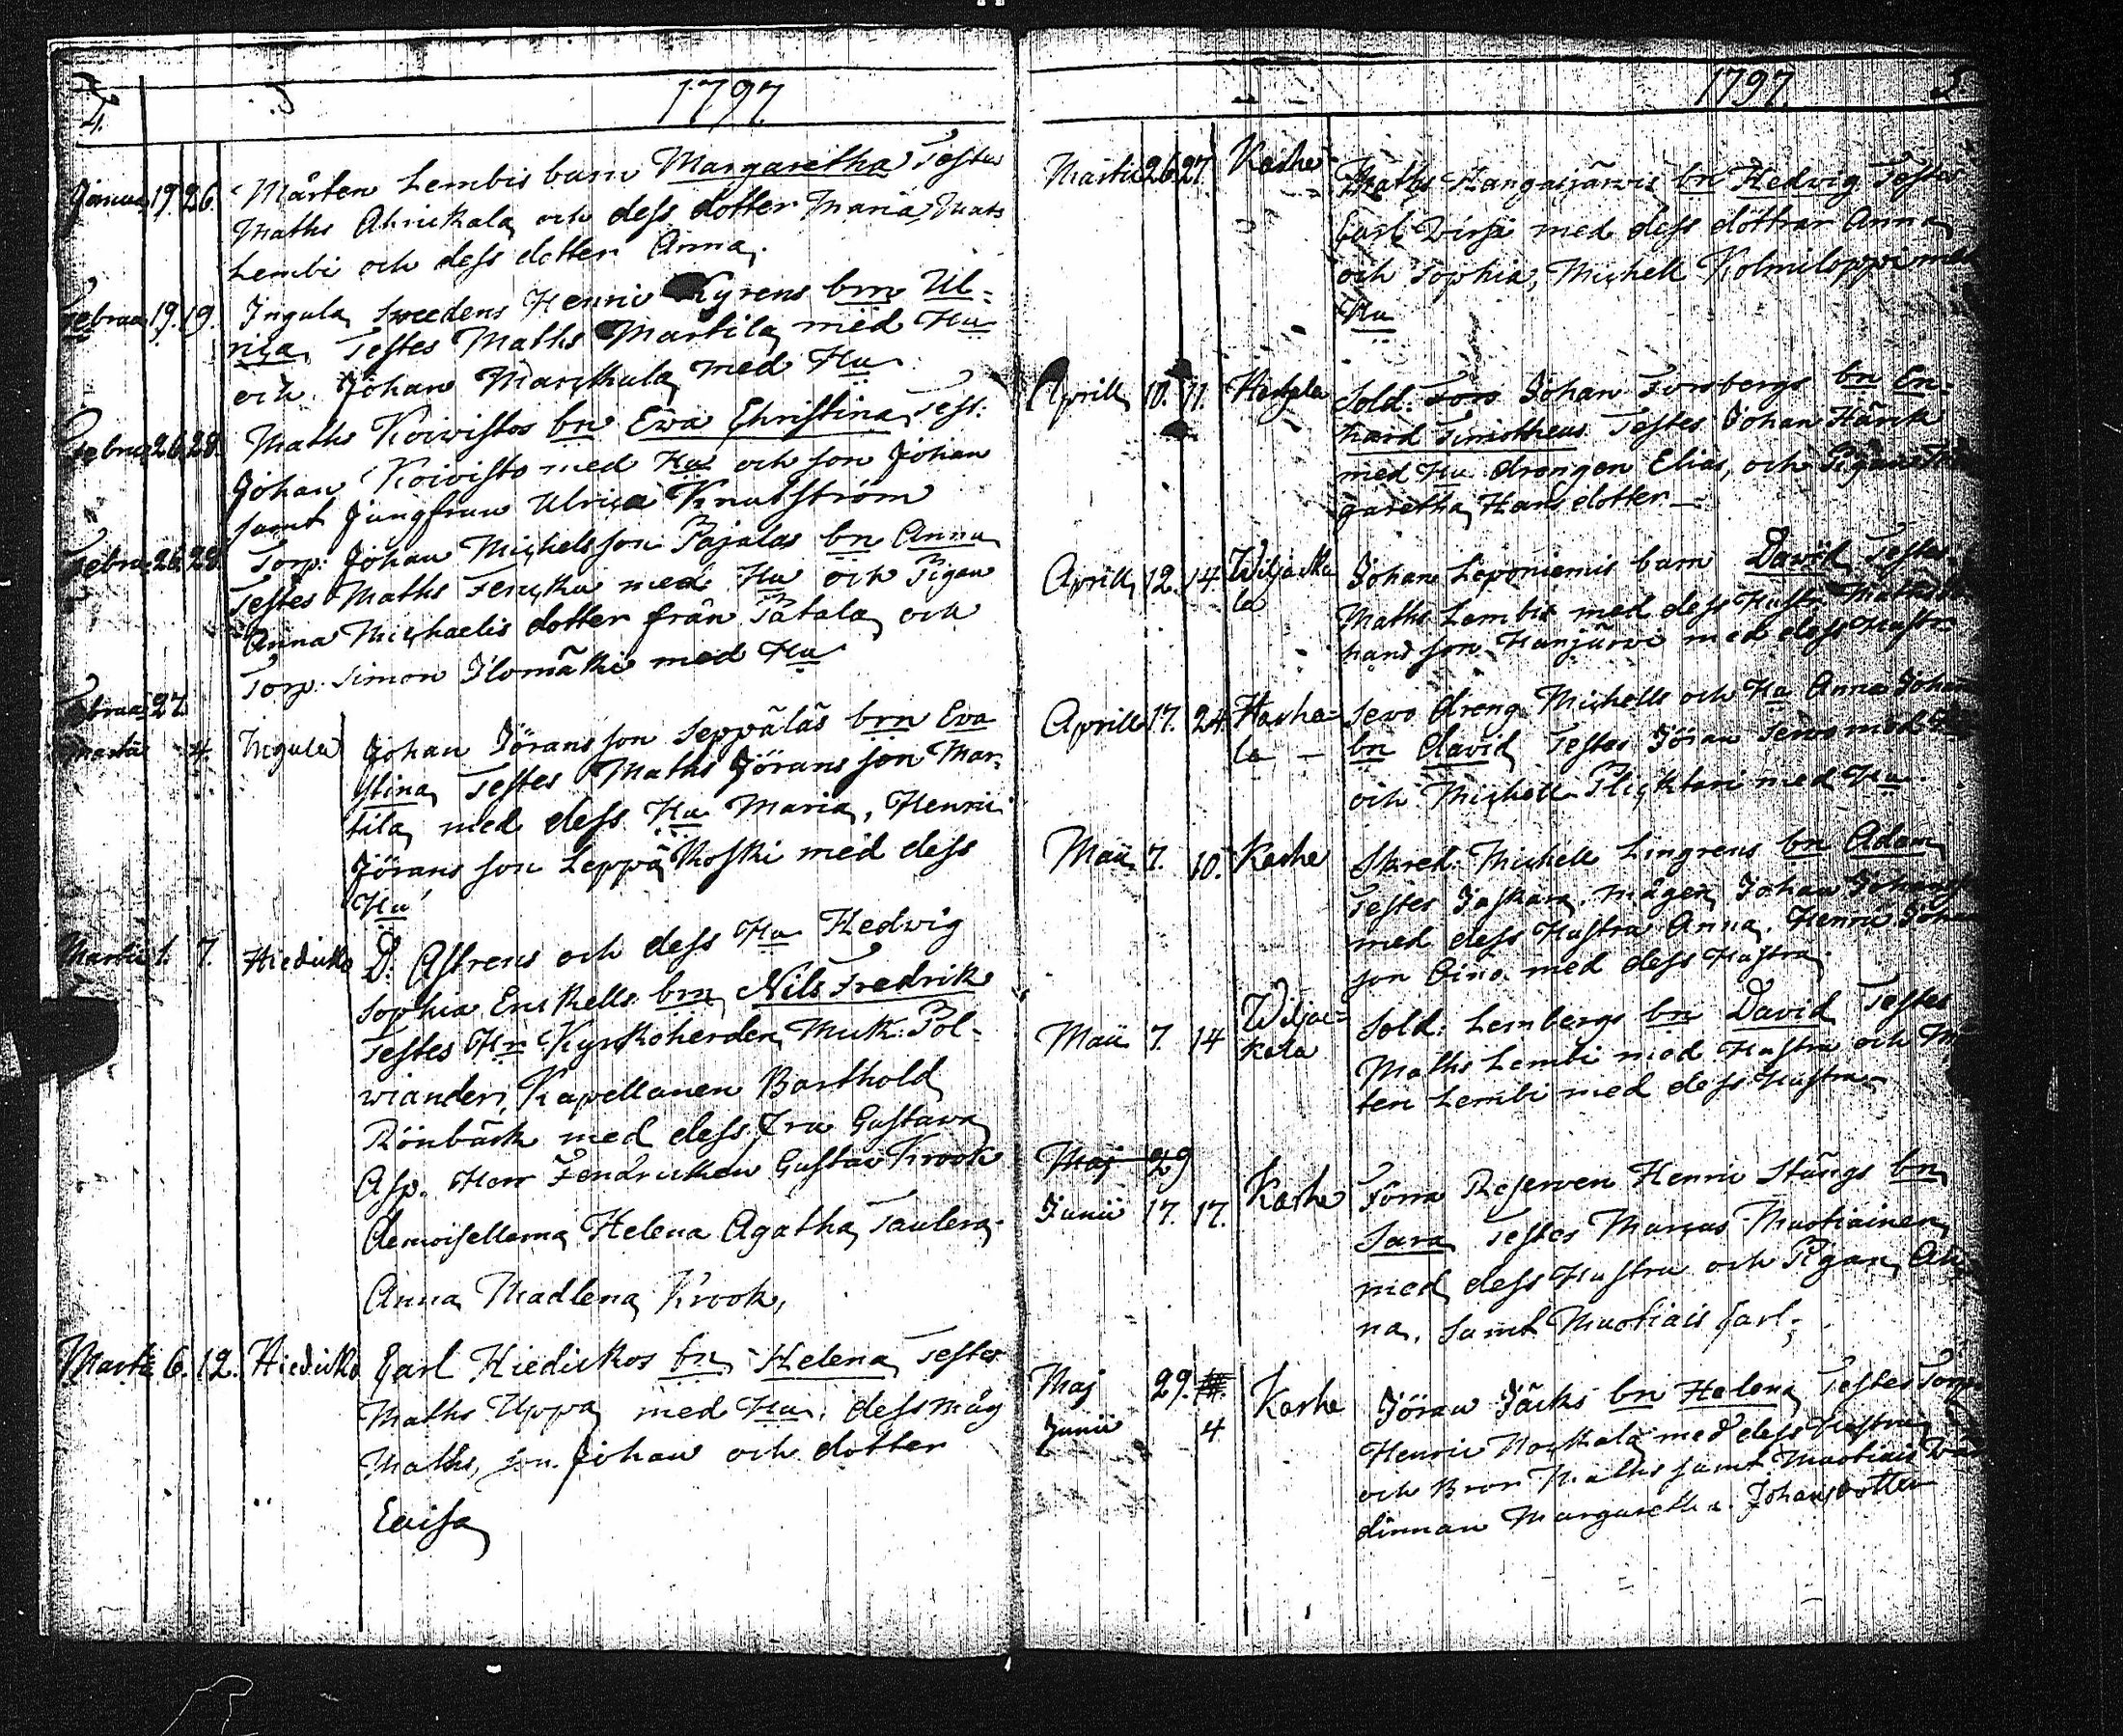 4.
1797.
Januar 19. 26. Mårten Lembis barn Margaretha Testes
Maths Ahrickala och dess dotter Maria, Mats
Lembi och dess dotter Anna.
Februar 19. 19. Ingula Swedens Henric Kyrens brn Ul-
rica Testes Maths Martila med Hu
och Johan Marckula med Hu
Februar 26. 28. Maths Koiwistos bn Ewa Christina Test:
Johan Koivisto med Hu och son Johan
samt Jungfruu Ulrica Knutström
Februar 26. 28. Torp: Johan Michelsson Pajulas bn Anna
Testes Maths med Hu och Pigan
Anna Michaelis dotter från Pätala och
Torp: Simon Ilomäki med Hu
Februar 27.
Martii 4. Ingula Johan Jöransson Seppäläs brn Eva
Stina Testes Maths Jöransson Mar-
tila med dess Hu Maria, Henric
Jöransson Leppäkoski med dess
Hu
Martii 1. 7. Hiedickko D: Astrens och dess Hu Hedvig
Sophia Enckells brn Nils Fredrik
Testes Hr Kyrkoherden Pol-
wiander, Kapellanen Barthold
Rönbäck med dess Fru Gustava
Asp. Herr Fendricken Gustav Krook
demoisellerna Helena Agatha Taulera
Anna Madlena Krook,
Martii 6. 12. Hiedicko Carl Hiedickos bn Helena Testes
Maths Uppa med Hu, dess måg
Maths, son Johan och dotter
Caisa
1797.
5.
Martii 26 27. Karhe Maths Hangasjärvis bn Hedvig Testes
Carl Virsä med dess döttrar Anna
och Sophia, Michell Kolmiloppi med
Hu
Aprill 10. 11. Sold: Fors Johan Forsbergs bn En-
hard Timotheus Testes Johan Härck
med Hu drengen Elias, och Pigan
garetha Hans dotter
Aprill 12. 14. Wiljacka
la Johan Leponiemis barn David Testes
Maths Lembis med dess Hustr
hans son Hanjärvi med dess Hustr
Aprill 17. 24. Havha-
la Sevo dreng Michells och Hu Anna Johan
bn David Testes Jöran Sevo med
och Michell Plichtari med Hu.
Maii 7. 10. Karhe Skred: Michell Lingrens bn Adam
Testes Jaskara mågen Johan
med dess Hustru Anna. Henric Johan
son Aino med dess Hustru
Maii 7. 14 Wiljac-
kala Sold: Lembergs bn David Testes
Maths Lembi med Hustru och M
ten Lembi med dess Hustru
Maj 29
Junii 17. 17. Karhe Förra Reserven Henric Stångs bn
Sara Testes Marcus Muotiainen
med dess Hustru och Pigan An
na, samt Muotiais Carl.
Maj 29.
Junii 4 Karhe Jöran Jäcks bn Helena Testes Torp
Henric med dess Hustru
och Bror Maths samt Muotiais
dinnan Margaretha Johans dotter